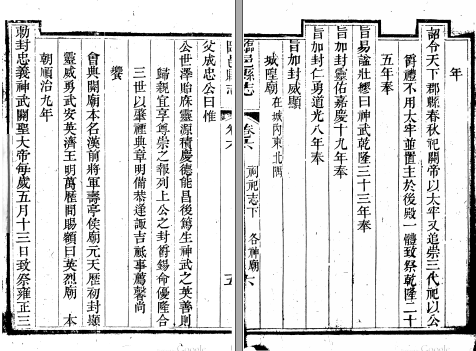 父成忠公曰惟
公世澤貽庥靈源積慶德能昌後篤生神武之英善則
歸親宜享尊崇之報列上公之封爵錫命優隆合
三世以肇禋典章明備恭逢諏吉祗事薦馨尚
饗
會典關廟本名漢前將軍壽亭侯廟元天歷初封顯
靈威勇武安英濟王明萬歷間賜額曰英烈廟 本
朝順治九年
勅封忠義神武關聖大帝每歲五月十三日致祭雍正三
五
年
詔令天下郡縣春秋祀關帝以太牢又追崇三代祀以公
爵禮不用太牢並置主於後殿一體致祭乾隆二十
五年奉
旨易諡壯繆曰神武乾隆三十三年奉
旨加封靈佑嘉慶十九年奉
旨加封仁勇道光八年奉
旨加封威顯
城隍廟在城內東北隅
臨邑縣志 卷六 祠祀志下 各神廟 六